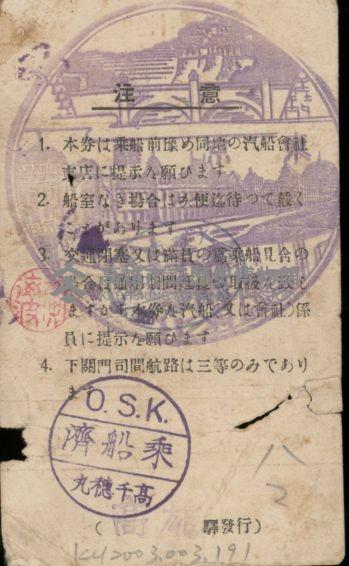 注意
1. 本券は乘船前豫め同地の汽船會社
支店に提示を願ひます
2. 船室なき場合は次便迄待つて戴く
ことがあります
3. 交通閉塞又は滿員の爲乘船見合の
場合は通用期間延長の取扱を致し
ますから本券を汽船(又は會社)係
員に提示を願ひます
4. 下關門司間航路は三等のみであり
ます
O.S.K.
濟船乘
丸穗千高
八
2
( 高雄 驛發行)
KH2003.003.191